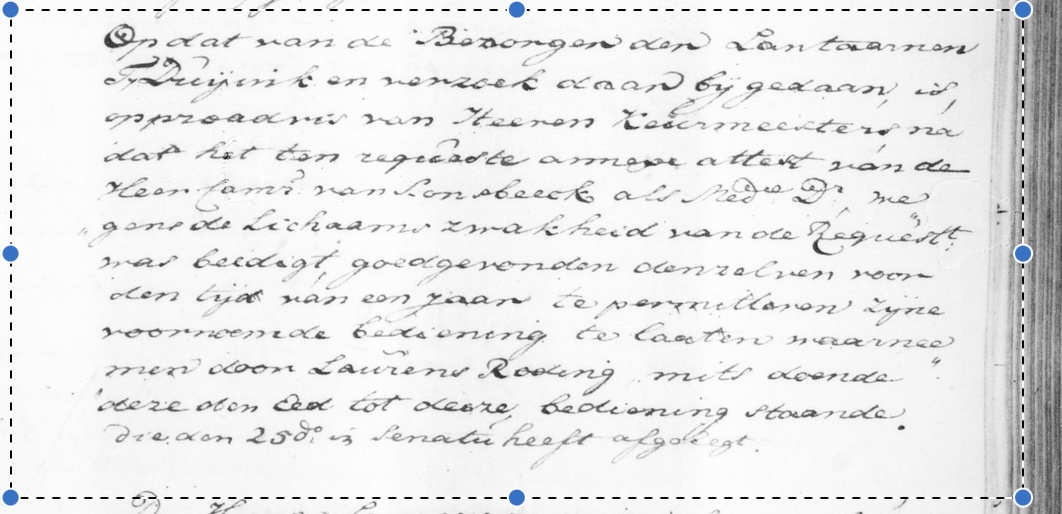 Op dat van de Bezorger der Lantaarnen
T. Duijvink en verzoek daar bij gedaan, is,
op præadvis van Heeren Keurmeesters na
dat het ten requeste annexe attest van de
Heer Cams. van Lonsbeeck als Med:e Dr. we
„gens de Lichaams zwakheid van de Requestt.
was beedigt, goedgevonden denzelven voor
den tijd van een jaar te permitteren zijne
voornoemde bediening te laaten waarnee„
men door Laurens Roding mits doende
deze den Eed tot deeze bediening staande.
Die den 25do. in Senatu heeft afgelegt.